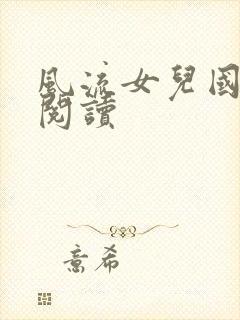 風流女兒國
閱讀
意希